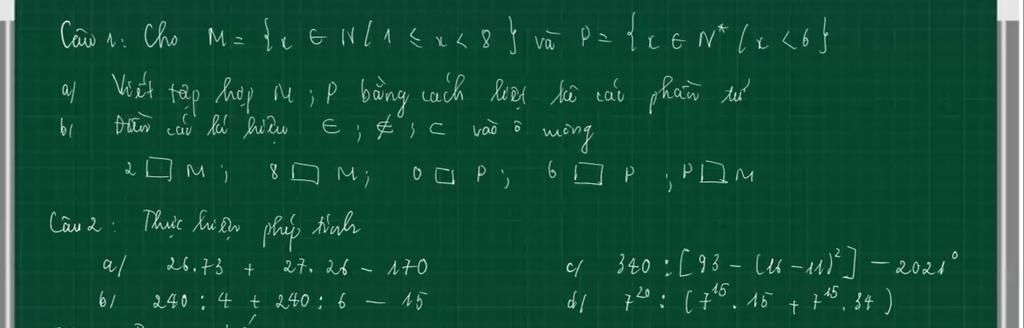 Câu 1: Cho M = {x ∈ N / 1 ≤ x < 8} và P = {x ∈ N* / x < 6}
a/ Viết tập hợp M ; P bằng cách liệt kê các phần tử
b/ Điền các kí hiệu ∈ ; ∉ ; ⊂ vào ô
2 □ M ; 8 □ M ; 0 □ P ; 6 □ P ; P □ M
Câu 2 : Thực hiện phép tính
a/ 26.73 + 27.26 - 170 c/ 340 : [93 - (16 - 11)²] - 2021⁰
b/ 240 : 4 + 240 : 6 - 15 d/ 7²⁰ : (7¹⁵ . 15 + 7¹⁵ . 34)